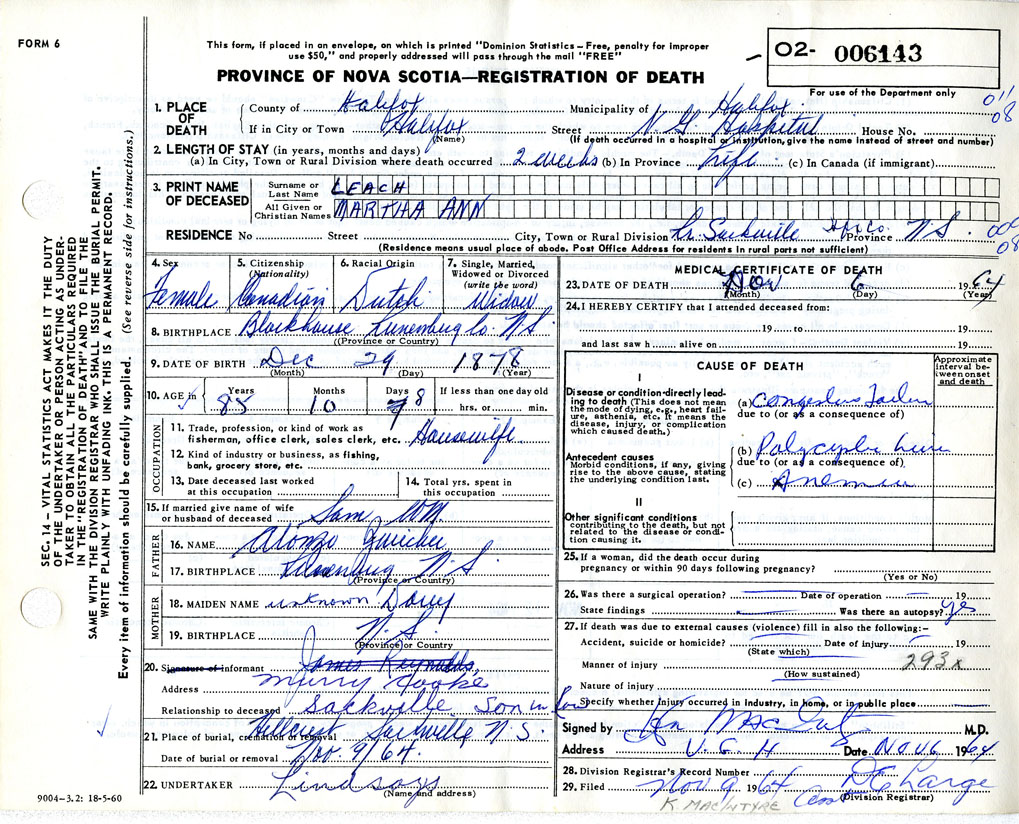 FORM 6
This form, if placed in an envelope, on which is printed "Dominion Statistics – Free, penalty for improper
use $50," and properly addressed will pass through the mail "FREE"
PROVINCE OF NOVA SCOTIA—REGISTRATION OF DEATH
02- 006143
For use of the Department only
011
08
1. PLACE OF DEATH
County of Halifax Municipality of Halifax
If in City or Town Halifax (Name) Street V. G. Hospital House No.
(If death occurred in a hospital or institution, give name instead of street and number)
2. LENGTH OF STAY (in years, months and days)
(a) In City, Town or Rural Division where death occurred 2 weeks (b) In Province Life (c) In Canada (if immigrant)
3. PRINT NAME OF DECEASED
Surname or Last Name LEACH
All Given or Christian Names MARTHA ANN
RESIDENCE No Street City, Town or Rural Division Lr. Sackville Hfx Co. Province N S.
009
08
(Residence means usual place of abode. Post Office Address for residents in rural parts not sufficient)
4. Sex Female
5. Citizenship (Nationality) Canadian
6. Racial Origin Dutch
7. Single, Married, Widowed or Divorced (write the word) Widow
8. BIRTHPLACE Blockhouse Lunenburg Co. N S.
(Province or Country)
9. DATE OF BIRTH Dec 29 1878
(Month) (Day) (Year)
10. AGE in Years 85 Months 10 Days 8 If less than one day old
hrs. or min.
OCCUPATION
11. Trade, profession, or kind of work as
fisherman, office clerk, sales clerk, etc. Housewife
12. Kind of industry or business, as fishing,
bank, grocery store, etc.
13. Date deceased last worked
at this occupation
14. Total yrs. spent in
this occupation
15. If married give name of wife
or husband of deceased Sam Wm.
FATHER
16. NAME Alonzo
17. BIRTHPLACE Lunenburg N. S.
(Province or Country)
MOTHER
18. MAIDEN NAME unknown
19. BIRTHPLACE N. S.
(Province or Country)
20. Signature of informant James Reynolds
Murry Cooke
Address Sackville
Relationship to deceased Son in law
21. Place of burial, cremation or removal Hillcrest Sackville N. S.
Date of burial or removal Nov. 9/64
22. UNDERTAKER Lindsays
(Name and address)
MEDICAL CERTIFICATE OF DEATH
23. DATE OF DEATH Nov 6 1964
(Month) (Day) (Year)
24. I HEREBY CERTIFY that I attended deceased from:
19 to 19
and last saw h alive on 19
CAUSE OF DEATH
Approximate interval between onset and death
I
Disease or condition directly leading to death (This does not mean
the mode of dying, e.g., heart failure, asthenia, etc. It means the
disease, injury, or complication
which caused death.)
(a) Congestive Failure
due to (or as a consequence of)
Antecedent causes
Morbid conditions, if any, giving
rise to the above cause, stating
the underlying condition last.
(b)
due to (or as a consequence of)
(c) Anemia
II
Other significant conditions
contributing to the death, but not
related to the disease or condition causing it.
25. If a woman, did the death occur during
pregnancy or within 90 days following pregnancy?
(Yes or No)
26. Was there a surgical operation? Date of operation 19
State findings Was there an autopsy? yes
27. If death was due to external causes (violence) fill in also the following:–
Accident, suicide or homicide? Date of injury 19
(State which)
Manner of injury 293x
(How sustained)
Nature of injury
Specify whether injury occurred in industry, in home, or in public place
Signed by M.D.
Address V. G. H Date Nov 6 1964
28. Division Registrar's Record Number
29. Filed Nov 9 1964 D E Large
K. MACINTYRE
(Division Registrar)
SEC. 14 – VITAL STATISTICS ACT MAKES IT THE DUTY
OF THE UNDERTAKER OR PERSON ACTING AS UNDER-
TAKER TO OBTAIN ALL THE PARTICULARS REQUIRED
IN THE "REGISTRATION OF DEATH" AND TO FILE THE
SAME WITH THE DIVISION REGISTRAR WHO SHALL ISSUE THE BURIAL PERMIT.
WRITE PLAINLY WITH UNFADING INK. THIS IS A PERMANENT RECORD.
Every item of information should be carefully supplied. (See reverse side for instructions.)
9004–3.2: 18-5-60